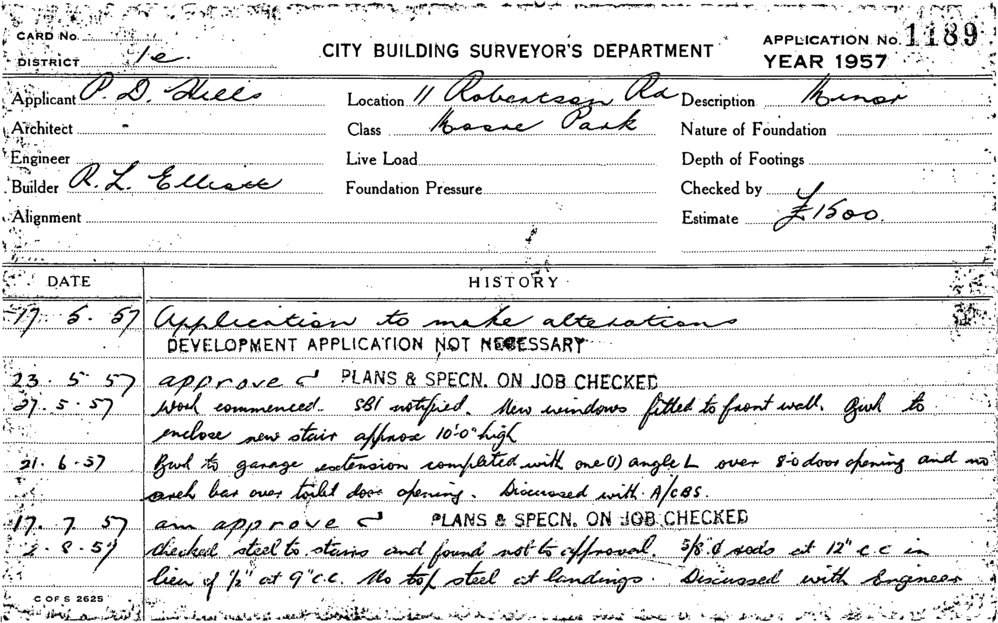 CARD No.
DISTRICT 1e.
CITY BUILDING SURVEYOR'S DEPARTMENT
APPLICATION No. 1189
YEAR 1957
Applicant P. D. Hills Location 11 Robertson Rd Description Minor
Architect Class Moore Park Nature of Foundation
Engineer Live Load Depth of Footings
Builder R. L. Elliott Foundation Pressure Checked by
Alignment Estimate £1500.
DATE HISTORY
17. 5. 57 Application to make alterations
DEVELOPMENT APPLICATION NOT NECESSARY
23. 5. 57 approved PLANS & SPECN. ON JOB CHECKED
27. 5. 57 Work commenced. SBI notified. New windows fitted to front wall. Bwk to
enclose new stair approx 10'0" high
21. 6. 57 Bwk to garage extension completed with one (1) angle L over 8'0 door opening and no
arch bar over toilet door opening. Discussed with A/CBS.
17. 7. 57 am approved PLANS & SPECN. ON JOB CHECKED
2. 8. 57 Checked steel to stairs and found not to approval. 5/8 ϕ rods at 12" c.c in
lieu of 1/2" at 9" c.c. No top steel at landings. Discussed with Engineer
C OF S 2625